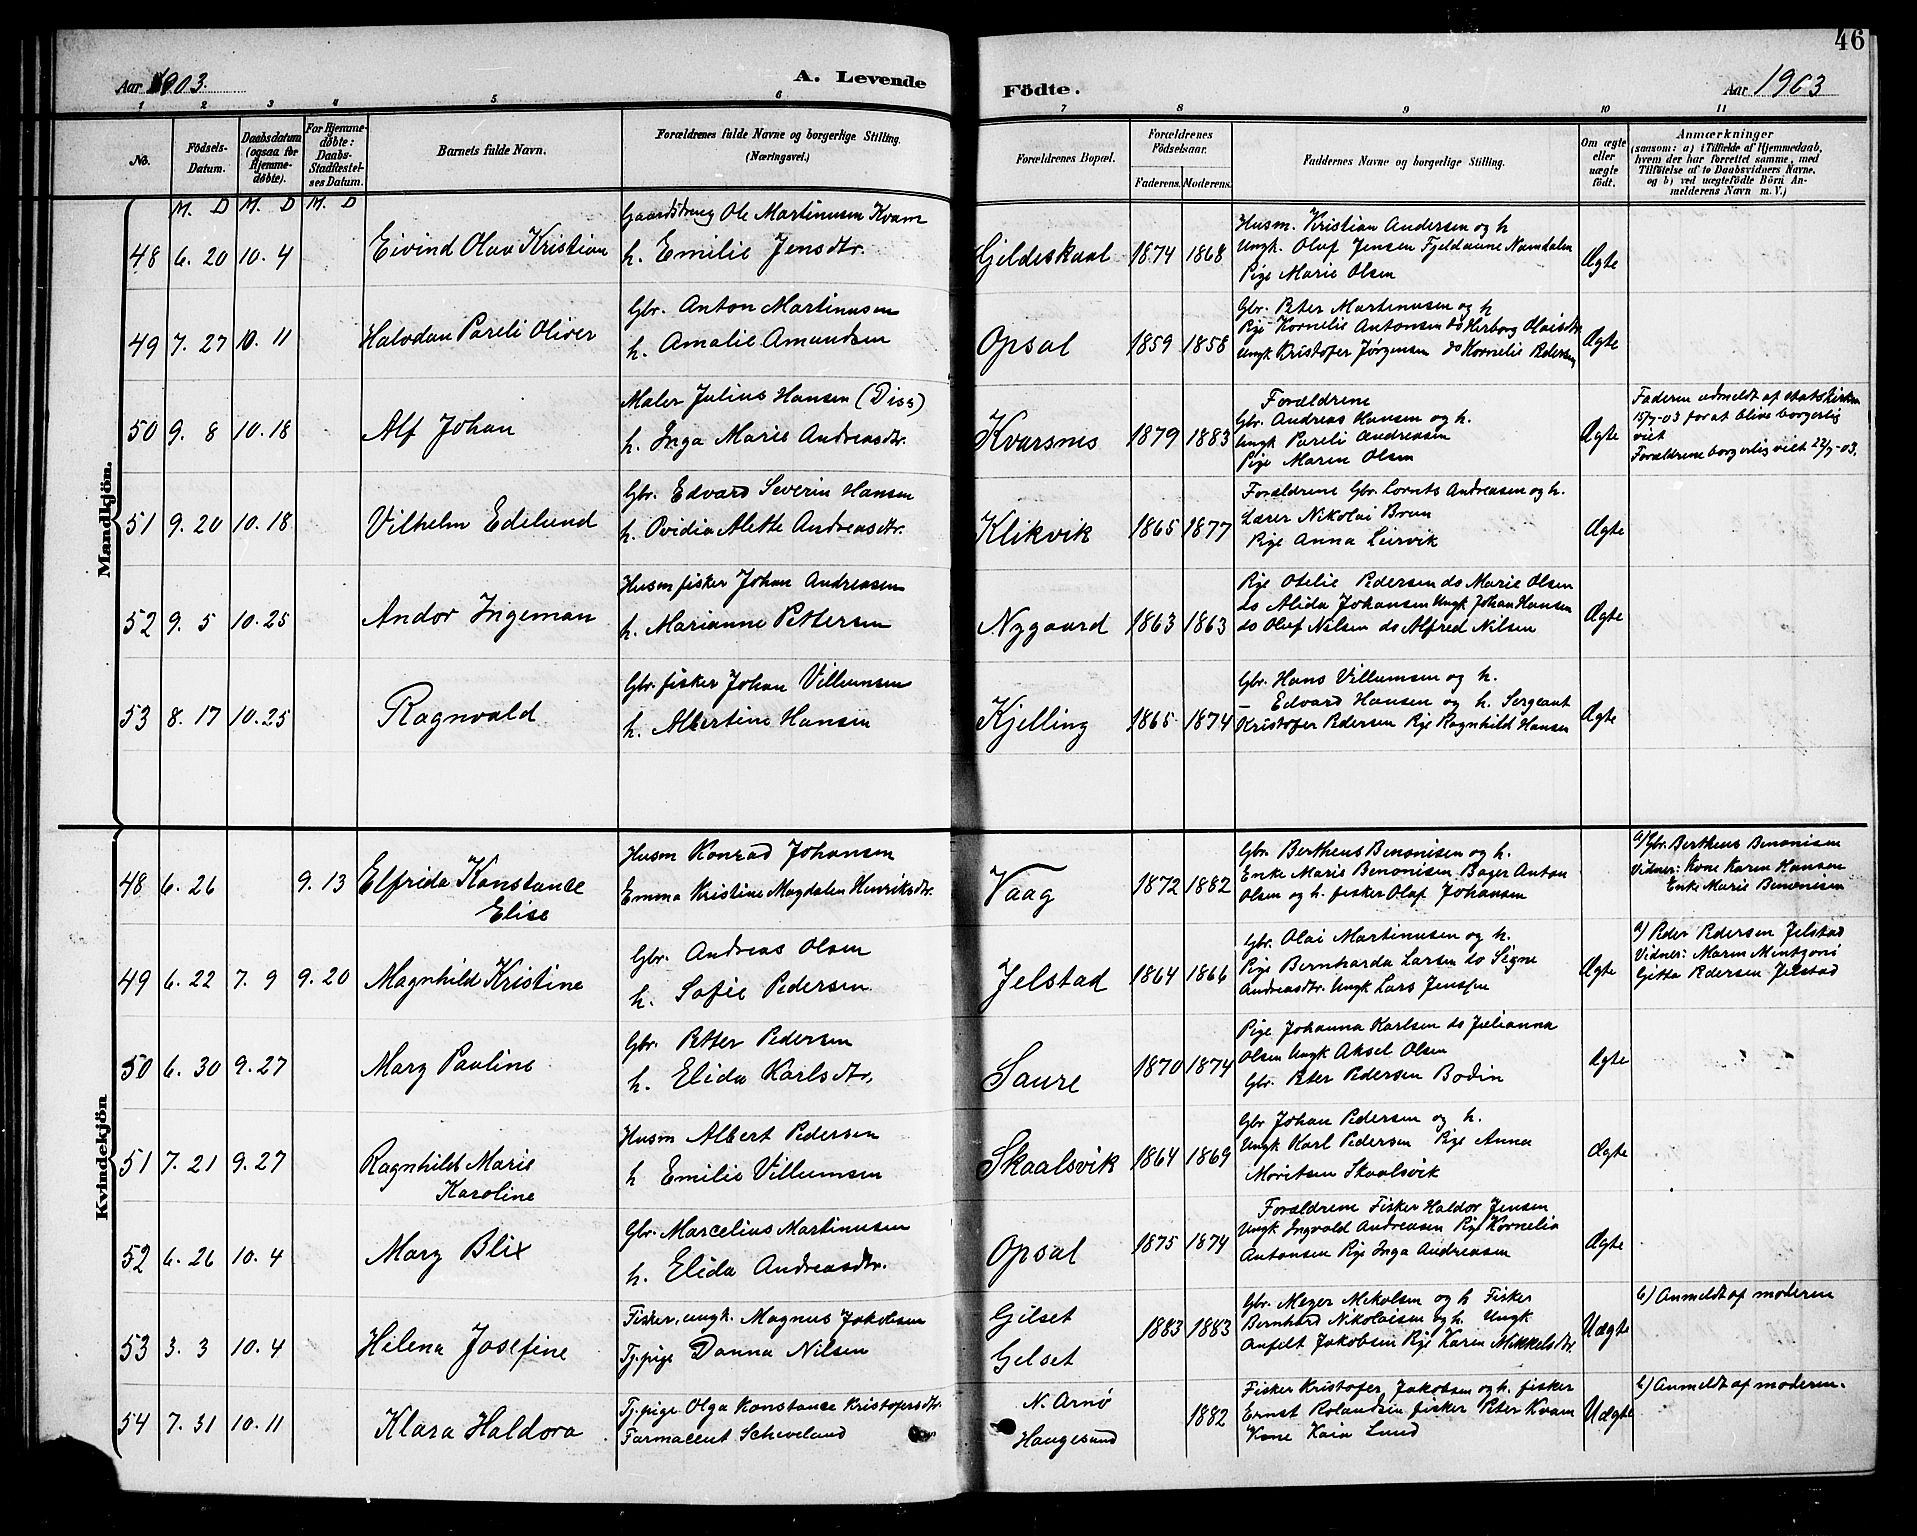 46
Aar 1903.
A. Levende
Födte.
Aar 1903
1 2 3 4 5 6 7 8 9 10 11
No.
Födsels-Datum.
Daabsdatum (ogsaa for Hjemmedøbte).
For Hjemmedøbte: Daabs-Stadfæstelses Datum.
Barnets fulde Navn.
Forældrenes fulde Navne og borgerlige Stilling. (Næringsvei.)
Forældrenes Bopæl.
Forældrenes Födselsaar.
Faderens. Moderens.
Faddernes Navne og borgerlige Stilling.
Om ægte eller uægte födt.
Anmærkninger
(saasom: a) i Tilfælde af Hjemmedaab,
hvem der har forrettet samme, med
Tilføielse af to Daabsvidners Navne,
og b) ved uægtefödte Börn An-
melderens Navn m. V.)
M. D M. D M. D
Mandkjön.
48 6. 20 10. 4 Eivind Olav Kristian
Gaardsdreng Ole Martinusen Kvam
h. Emilie Jensdtr.
Gjeldeskaal 1874 1868
Husm. Kristian Andersen og h
Ungk. Oluf Jensen Fjeldavne Namdalen
Pige Marie Olsen
Ægte
49 7. 27 10. 11 Halvdan Pareli Oliver
Gbr. Anton Martinusen
h. Amalie Amundsen
Opsal 1859 1858
Gbr. Peter Martinusen og h
Pige Kornelie Antonsen do Herborg Olaisdtr
Ungk Kristofer Jørgensen do Kornelie Pedersen
Ægte
50 9. 8 10. 18 Alf Johan
Maler Julius Hansen (Diss)
h. Inga Marie Andreasdtr.
Kvarsnes 1879 1883
Forældrene
Gbr. Andreas Hansen og h.
Ungk Pareli Andreasen
Pige Maren Olsen
Ægte
Faderen udmeldt af statskirken
15/7-03 for at blive borgerlig
viet
Forældrene borgerlig viet 22/7-03.
51 9. 20 10. 18 Vilhelm Edelund
Gbr. Edvard Severin Hansen
h. Ovidia Alette Andreasdtr.
Klikvik 1865 1877
Forældrene Gbr. Lornts Andreasen og h.
Lærer Nikolai Brun
Pige Anna Leirvik
Ægte
52 9. 5 10. 25 Andor Ingeman
Husm fisker Johan Andreasen
h. Marianne Pettersen
Nygaard 1863 1863
Pige Otelie Pedersen do Marie Olsen
do Alida Johansen Ungk Johan Hansen
do Oluf Nilsen do Alfred Nilsen
Ægte
53 8. 17 10. 25 Ragnvald
Gbr. fisker Johan Villumsen
h. Albertine Hansen
Kjelling 1865 1874
Gbr. Hans Villumsen og h.
- Edvard Hansen og h. Sergeant
Kristofer Pedersen Pige Ragnhild Hansen
Ægte
Kvindekjön
48 6. 26 9. 13 Elfrida Konstance
Elise
Husm Konrad Johansen
Emma Kristine Magdalen Henriksdtr.
Vaag 1872 1882
Gbr. Bertheus Benonisen og h.
Enke Marie Benonisen Bager Anton
Olsen og h. fisker Olaf Johansen
a) Gbr. Bertheus Benonisen
Vidner: Kone Karen Hansen
Enke Marie Benonisen
49 6. 22 7. 9 9. 20 Magnhild Kristine
Gbr. Andreas Olsen
h. Sofie Pedersen
Jelstad 1864 1866
Gbr. Olai Martinusen og h.
Pige Bernharda Larsen do Signe
Andreasdtr. Ungk Lars Jensen
Ægte
a) Peder Pedersen Jelstad
Vidner: Maren
Gitta Pedersen Jelstad
50 6. 30 9. 27 Mary Pauline
Gbr. Petter Pedersen
h. Elida Karlsdtr.
Saure 1870 1874
Pige Johanna Karlsen do Julianna
Olsen Ungk Aksel Olsen
Gbr. Peter Pedersen Bodin
Ægte
51 7. 21 9. 27 Ragnhild Marie
Karoline
Husm Albert Pedersen
h Emilie Villumsen
Skaalsvik 1864 1869
Gbr Johan Pedersen og h.
Ungk Karl Pedersen Pige Anna
Moritsen Skaalsvik
Ægte
52 6. 26 10. 4 Mary Blix
Gbr. Marcelius Martinusen
h. Elida Andreasdtr.
Opsal 1875 1874
Forældrene Fisker Haldor Jensen
Ungk Ingvald Andreasen Pige Kornelia
Antonsen Pige Inga Andreasen
Ægte
53 3. 3 10. 4 Helena Josefine
Fisker, ungk. Magnus Jakobsen
Tj.pige Danna Nilsen
Gilset
Gilset
1883 1883
Gbr. Meyer Mikalsen og h Fisker
Bernhard Nikolaisen og h. Ungk
Anfelt Jakobsen Pige Karen Mikkelsdtr.
Uægte
b) Anmeldt af moderen
54 7. 31 10. 11 Klara Haldora
Tj.pige Olga Konstance Kristofersdtr.
Farmaceut Scheveland
N. Arnø
Haugesund
1882
Fisker Kristofer Jakobsen og h. fisker
Ernst Rolandsen fisker Peter Kvam
Kone Kaia Lund
Uægte
b) Anmeldt af moderen.